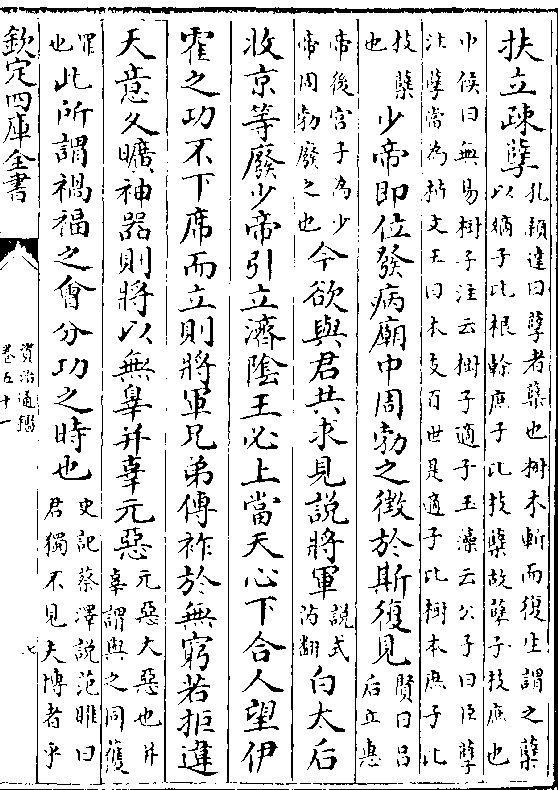 扶立疎孽孔穎達曰孽者蘖也樹木斬而復生謂之蘖以嫡子比根榦庶子比枝蘖故孽子枝庶也
中候曰無易樹子注云樹子適子玉藻云公子曰臣孽注孽當為枿文王曰本支百世是適子比樹本庶子比
枝蘖也少帝即位發病廟中周勃之徵於斯復見賢曰呂后立惠
帝後宮子為少帝周勃廢之也今欲與君共求見說將軍說式芮翻白太后
收京等廢少帝引立濟陰王必上當天心下合人望伊
霍之功不下席而立則將軍兄弟傳祚於無窮若拒違
天意久曠神器則將以無辠并辜元惡元惡大惡也并辜謂與之同獲
罪也此所謂禍福之會分功之時也史記蔡澤説范睢曰君獨不見夫博者乎
欽定四庫全書
資治通鑑
卷五十一
七